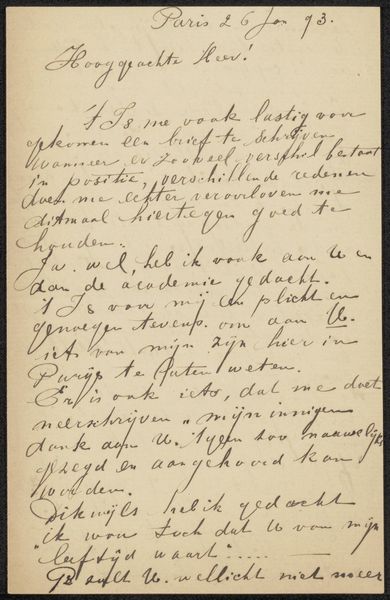 Paris 26 Jan 93.
Hooggeachte Heer!
't Is me vaak lastig voor
gekomen een brief te schrijven
wanneer er zooveel verschil bestaat
in positie, verschillende redenen
doen me echter veroorloven me
ditmaal hiertegen goed te
houden.
Ja. wel, heb ik vaak aan U en
aan de academie gedacht.
't Is voor mij een plicht en
genoegen tevens. om aan U.
iets van mijn zijn hier in
Parijs te laten weten.
Er is ook iets, dat me doet
neerschrijven "mijn innigen
dank aan U. 'tgeen zoo nauwelijks
gezegd en aangehoord kan
worden.
Dikwijls heb ik gedacht
"ik wou toch dat U van mijn
leeftijd waart".....
zult U. wellicht niet meer